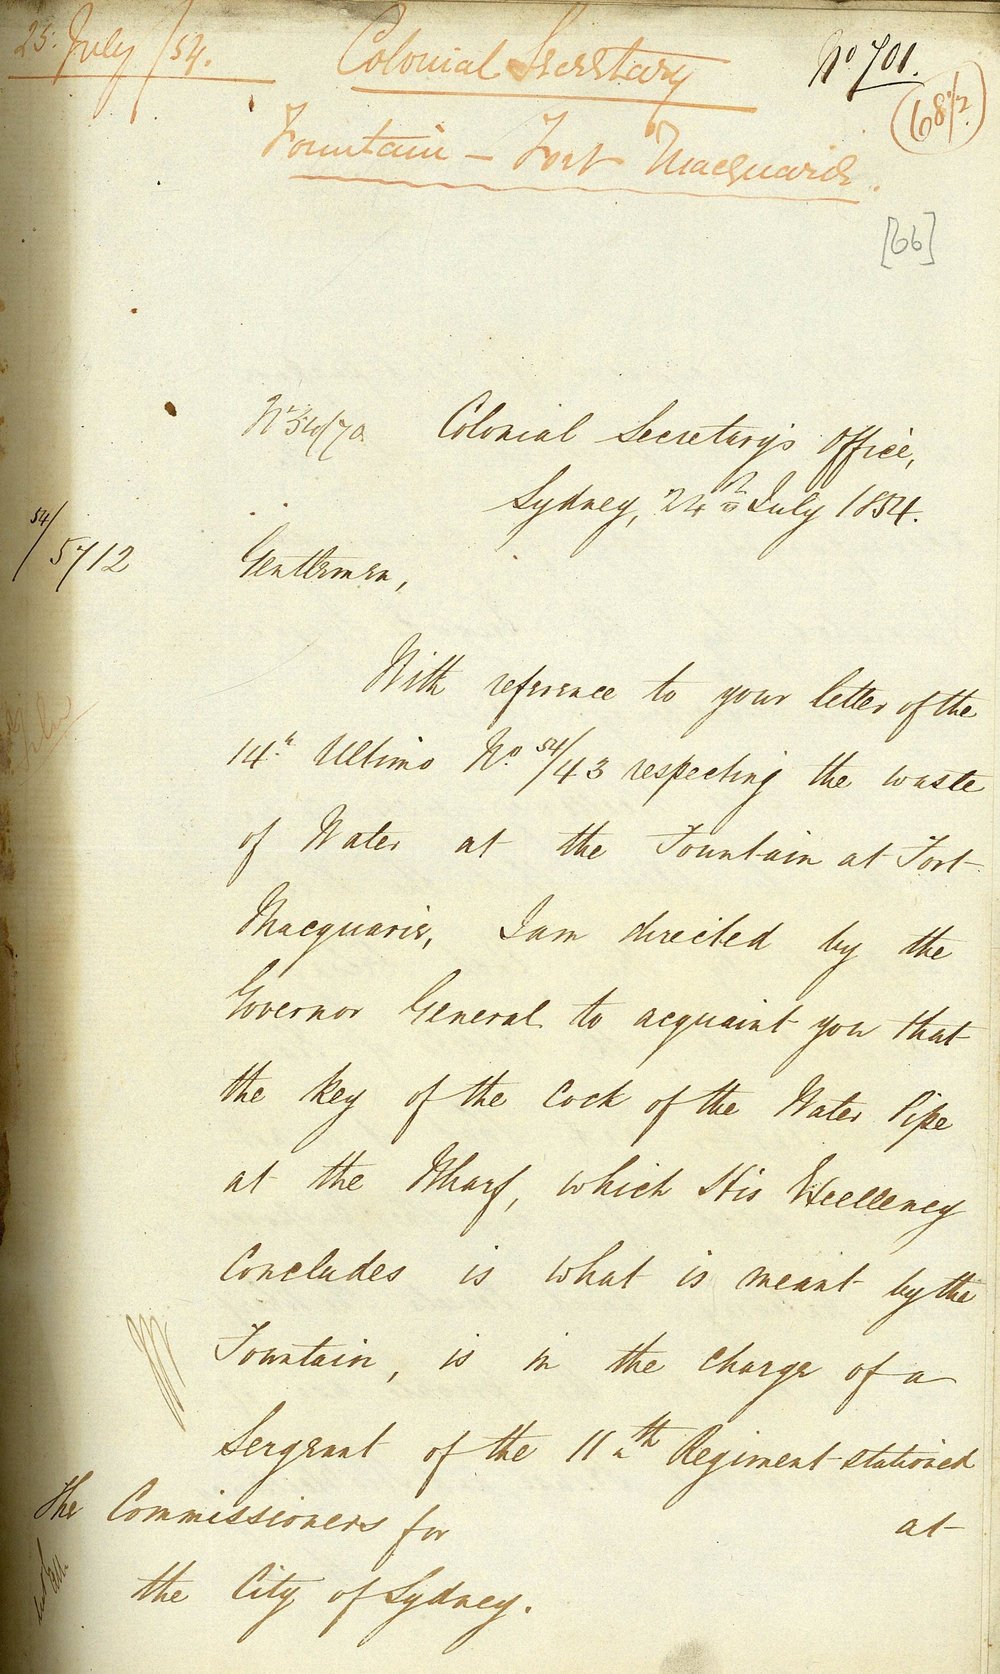 25. July /54.
Colonial Secretary
No 701.
(68 1/2)
Fountain – Fort Macquarie.
[66]
No 54/70
Colonial Secretary's Office,
Sydney, 24th July 1854.
54/5712
Gentlemen,
With reference to your letter of the
14th Ultimo No. 54/43 respecting the waste
of Water at the Fountain at Fort
Macquarie, I am directed by the
Governor General to acquaint you that
the key of the Cock of the Water Pipe
at the Wharf, which His Excellency
Concludes is what is meant by the
Fountain, is in the charge of a
Sergeant of the 11th Regiment stationed
at
The Commissioners for
the City of Sydney.